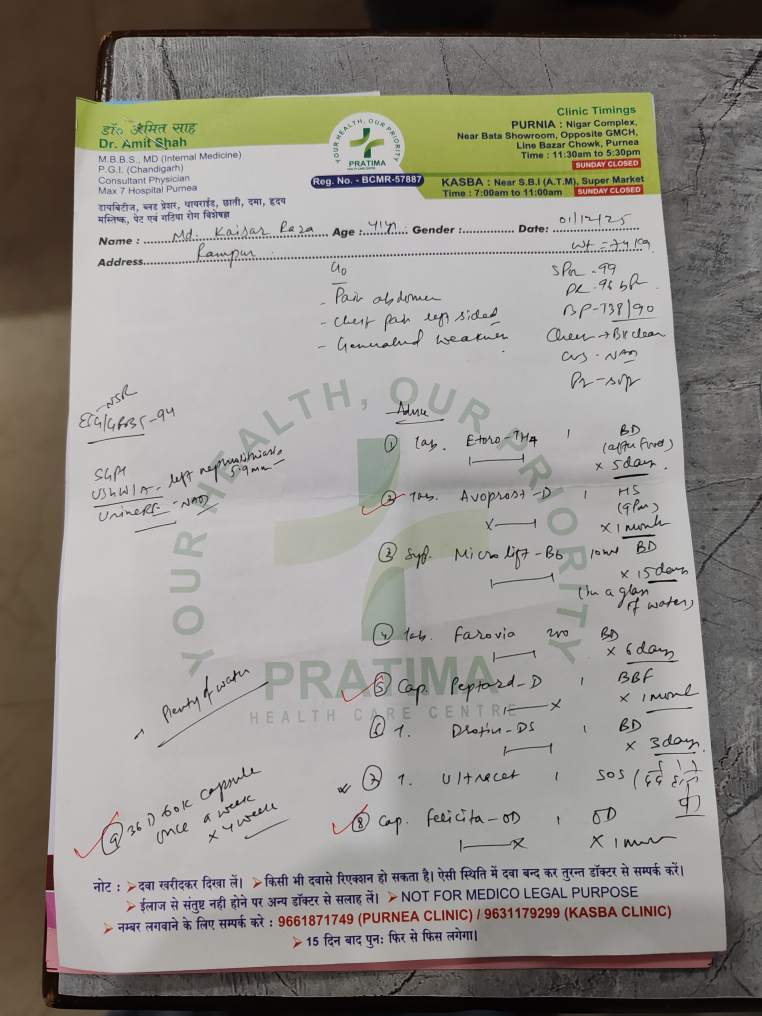 डॉ० अमित साह
Dr. Amit Shah
M.B.B.S., MD (Internal Medicine)
P.G.I. (Chandigarh)
Consultant Physician
Max 7 Hospital Purnea
डायबिटीज, ब्लड प्रेशर, थायराईड, छाती, दमा, हृदय
मस्तिष्क, पेट एवं गठिया रोग विशेषज्ञ
YOUR HEALTH, OUR PRIORITY
PRATIMA
HEALTH CARE CENTRE
Reg. No. - BCMR-57887
Clinic Timings
PURNIA : Nigar Complex,
Near Bata Showroom, Opposite GMCH,
Line Bazar Chowk, Purnea
Time : 11:30am to 5:30pm
SUNDAY CLOSED
KASBA : Near S.B.I (A.T.M), Super Market
Time : 7:00am to 11:00am SUNDAY CLOSED
Name : Md. Kaisar Raza Age : 41yr Gender : Date: 01/12/25
Address Rampur Wt = 74 kg
C/o
- Pain abdomen
- Chest pain left sided
- Generalised weakness
SPO2 - 99
PR - 96 bpm
BP - 138/90
Chest → B/L clear
CVS - NAD
P/A - soft
- NSR
ECG/GRBS - 94
USG W/A - left nephrolithiasis
5.9mm
Urine R/E - NAD
Advice
① Tab. Etoro-TH4 1 BD
(after food)
x 5 days
② Tab. Avoprost-D 1 HS
(9pm)
x 1 month
③ Syp. Microlift-B6 10ml BD
x 15 days
(in a glass
of water)
④ Tab. Farovia 200 BD
x 6 days
⑤ Cap. Peptard-D 1 BBF
x 1 month
→ Plenty of water
⑥ T. Drotin-DS 1 BD
x 3 days
⑦ T. Ultracet 1 SOS
⑧ Cap. Felicita-OD 1 OD
x 1 month
⑨ 60K capsule
once a week
x 4 week
YOUR HEALTH, OUR PRIORITY
PRATIMA
HEALTH CARE CENTRE
नोट : ➤ दवा खरीदकर दिखा लें। ➤ किसी भी दवासे रिएक्शन हो सकता है। ऐसी स्थिति में दवा बन्द कर तुरन्त डॉक्टर से सम्पर्क करें।
➤ ईलाज से संतुष्ट नही होने पर अन्य डॉक्टर से सलाह लें। ➤ NOT FOR MEDICO LEGAL PURPOSE
➤ नम्बर लगवाने के लिए सम्पर्क करे : 9661871749 (PURNEA CLINIC) / 9631179299 (KASBA CLINIC)
➤ 15 दिन बाद पुन: फिर से फिस लगेगा।